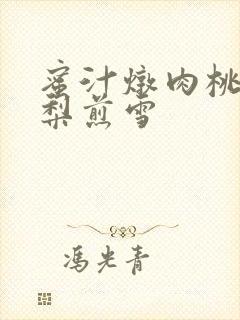 蜜汁燉肉桃
梨煎雪
馮光青